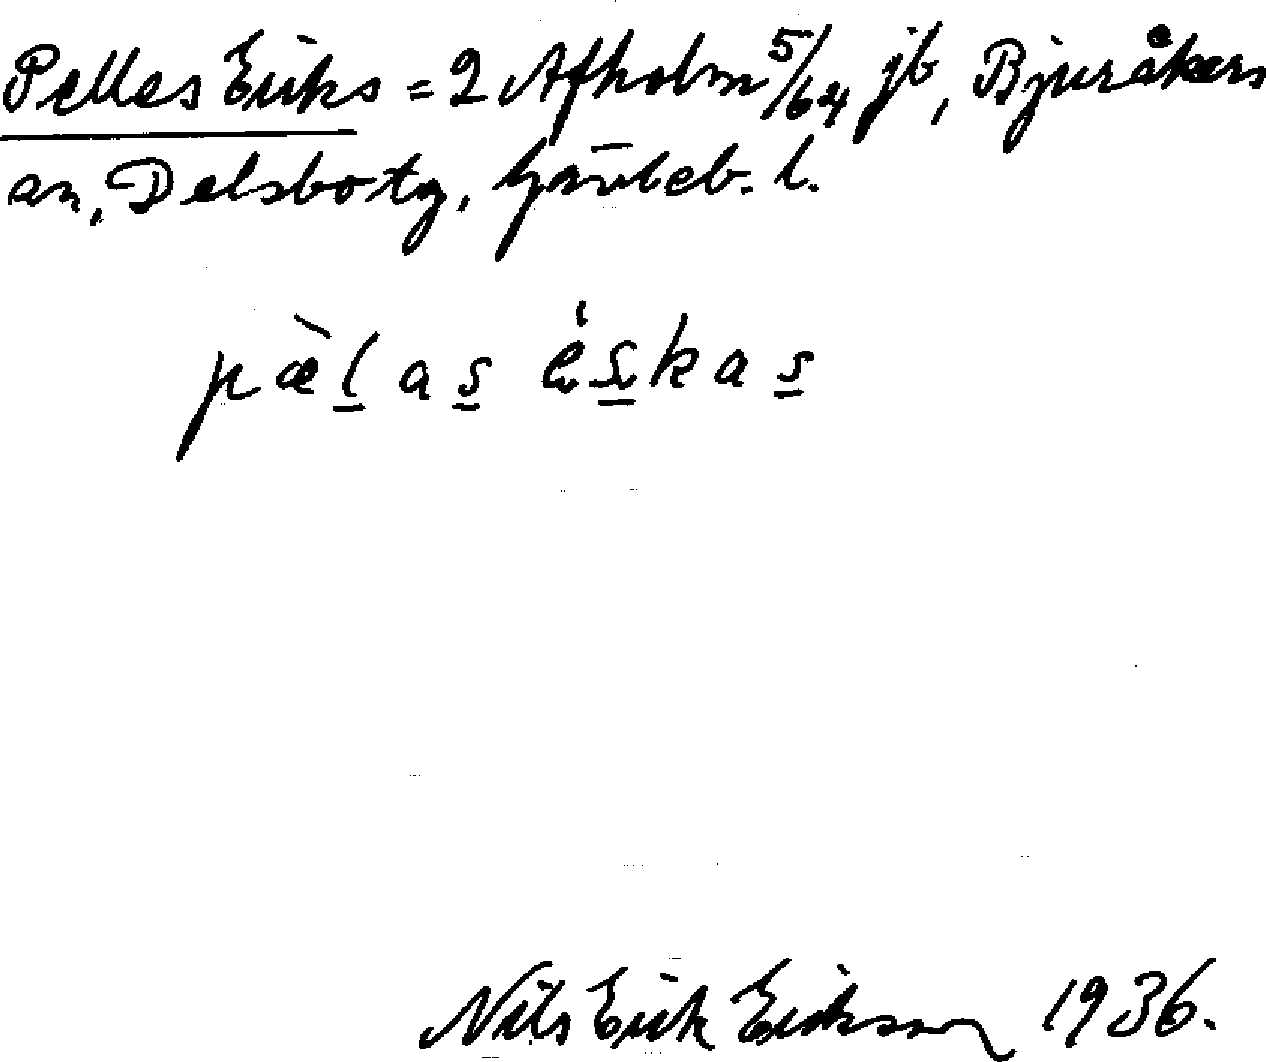 Pelles Eriks = 2 Afholm 5/64 jb, Bjuråkers
sn, Delsbo tg, Gävleb. l.
pæ̀l̲as̲ és̲kas̲
Nils Erik Eriksson 1936.